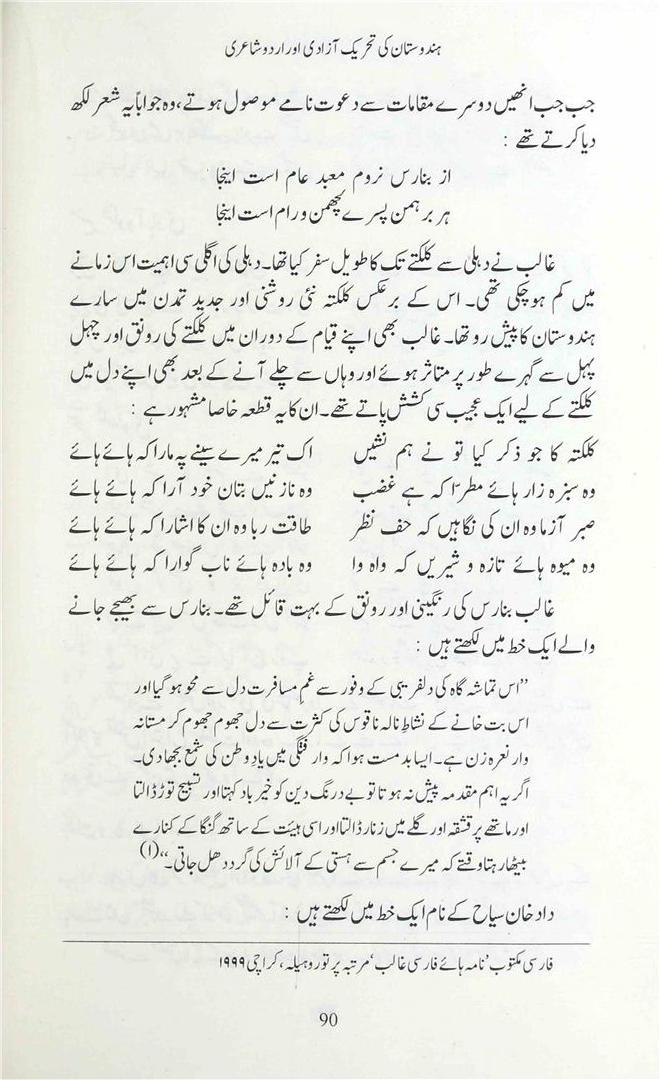 ہندوستان کی تحریک آزادی اور اردو شاعری
جب جب انھیں دوسرے مقامات سے دعوت نامے موصول ہوتے، وہ جواباً یہ شعر لکھ
دیا کرتے تھے :
از بنارس نروم معبد عام است اینجا
ہر برہمن پسرے لچھمن و رام است اینجا
غالب نے دہلی سے کلکتے تک کا طویل سفر کیا تھا۔ دہلی کی اگلی سی اہمیت اس زمانے
میں کم ہو چکی تھی۔ اس کے برعکس کلکتہ نئی روشنی اور جدید تمدن میں سارے
ہندوستان کا پیش رو تھا۔ غالب بھی اپنے قیام کے دوران میں کلکتے کی رونق اور چہل
پہل سے گہرے طور پر متاثر ہوئے اور وہاں سے چلے آنے کے بعد بھی اپنے دل میں
کلکتے کے لیے ایک عجیب سی کشش پاتے تھے۔ ان کا یہ قطعہ خاصا مشہور ہے :
کلکتہ کا جو ذکر کیا تو نے ہم نشیں اک تیر میرے سینے پہ مارا کہ ہائے ہائے
وہ سبزہ زار ہائے مطرّا کہ ہے غضب وہ نازنیں بتان خود آرا کہ ہائے ہائے
صبر آزما وہ ان کی نگاہیں کہ حف نظر طاقت ربا وہ ان کا اشارا کہ ہائے ہائے
وہ میوہ ہائے تازہ و شیریں کہ واہ وا وہ بادہ ہائے ناب گوارا کہ ہائے ہائے
غالب بنارس کی رنگینی اور رونق کے بہت قائل تھے۔ بنارس سے بھیجے جانے
والے ایک خط میں لکھتے ہیں :
”اس تماشہ گاہ کی دلفریبی کے وفور سے غمِ مسافرت دل سے محو ہو گیا اور
اس بت خانے کے نشاطِ نالہ ناقوس کی کثرت سے دل جھوم جھوم کر مستانہ
وار نعرہ زن ہے۔ ایسا بدمست ہوا کہ وارفتگی میں یادِ وطن کی شمع بجھا دی۔
اگر یہ اہم مقدمہ پیش نہ ہوتا تو بے درنگ دین کو خیر باد کہتا اور تسبیح توڑ ڈالتا
اور ماتھے پر قشقہ اور گلے میں زنار ڈالتا اور اسی ہیئت کے ساتھ گنگا کے کنارے
بیٹھا رہتا وقتے کہ میرے جسم سے ہستی کے آلائش کی گرد دھل جاتی۔“(۱)
داد خان سیاح کے نام ایک خط میں لکھتے ہیں :
فارسی مکتوب ’نامہ ہائے فارسی غالب‘ مرتبہ پرتو روہیلہ، کراچی ۱۹۹۹
90